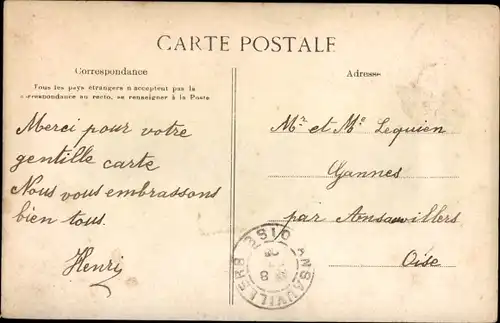 CARTE POSTALE
Correspondance
Tous les pays étrangers n'acceptent pas la
correspondance au recto, se renseigner à la Poste
Merci pour votre
gentille carte
Nous vous embrassons
bien tous.
Henri
Adresse
Mr et Me Lequien
Gannes
par Ansauvillers
Oise
ANSAUVILLERS
OISE
8